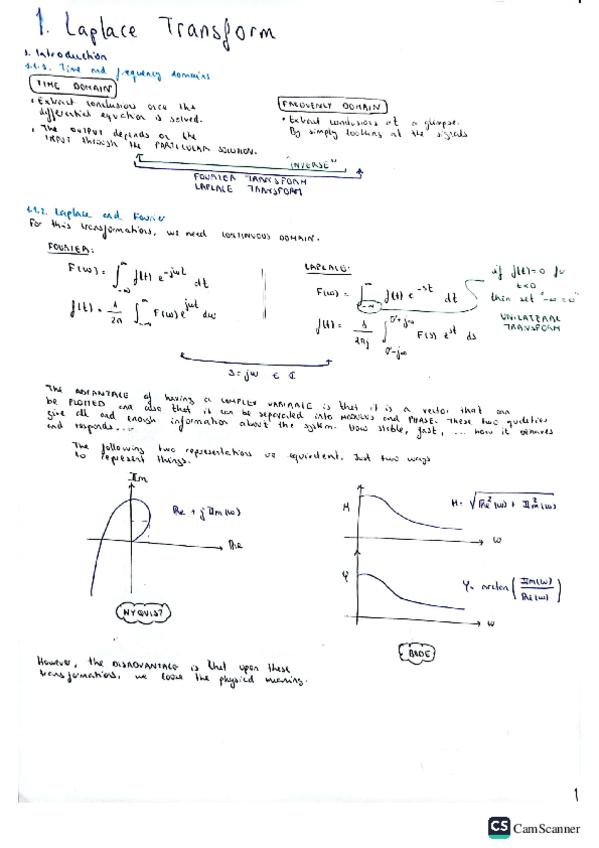 1. Laplace Transform
1. Introduction
1.1.1. Time and frequency domains
TIME DOMAIN
• Extract conclusions once the
differential equation is solved.
• The OUTPUT depends on the
INPUT through the PARTICULAR SOLUTION.
FREQUENCY DOMAIN
• Extract conclusions at a glimpse.
By simply looking at the signals
"INVERSE"
FOURIER TRANSFORM
LAPLACE TRANSFORM
1.1.2. Laplace and Fourier
For this transformations, we need CONTINUOUS DOMAIN.
FOURIER:
F(ω) = ∫_{-∞}^{∞} f(t) e^{-jωt} dt
f(t) = 1/2π ∫_{-∞}^{∞} F(ω) e^{jωt} dω
LAPLACE:
F(ω) = ∫_{-∞}^{∞} f(t) e^{-st} dt
f(t) = 1/2πj ∫_{σ-j∞}^{σ+j∞} F(s) e^{st} ds
if f(t)=0 for
t<0
then set "-∞ = 0"
UNILATERAL
TRANSFORM
s = jω ∈ ℂ
The ADVANTAGE of having a COMPLEX VARIABLE is that it is a vector that can
be PLOTTED and also that it can be separated into MODULUS and PHASE. These two quantities
give all and enough information about the system. How stable, fast, ... how it behaves
and responds...
The following two representations are equivalent. Just two ways
to represent things.
Im
Re + j Im(ω)
Re
NYQUIST
M
M = √(Re²(ω) + Im²(ω))
ω
φ
φ = arctan (Im(ω)/Re(ω))
ω
BODE
However, the DISADVANTAGE is that upon these
transformations, we loose the physical meaning.
1
CS CamScanner